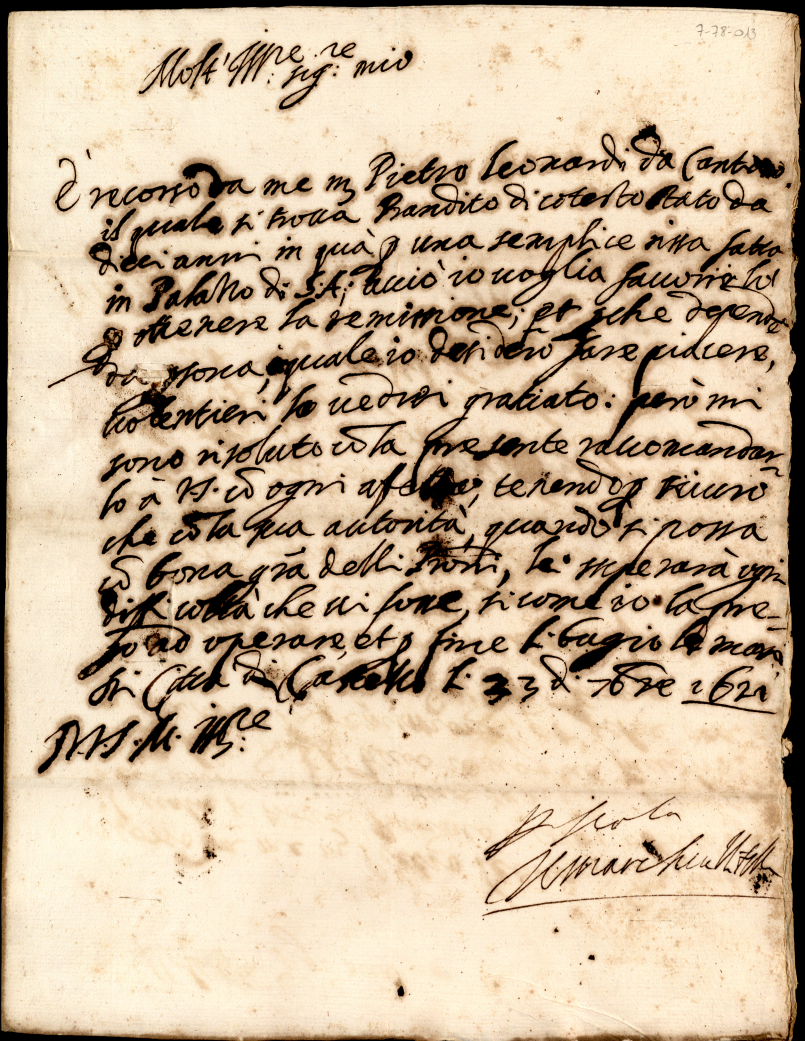 7-78-013
Molt' Ill.re sig.re mio
È ricorso da me m Pietro Leonardi da
il quale si trova Bandito di cotesto stato da
dieci anni in quà p una semplice rissa fatta
in Palazzo di S.A; acciò io voglia favorirlo
ottenere la remissione; et che depende
da, quale io desidero fare piacere,
volentieri lo vedrei gratiato: però mi
sono risoluto cō la presente raccomandar
lo à V.S. cō ogni affetto, tenendo p sicuro
che cō la sua autorità, quando si possa
cō bona grā delli, le superarà ogni
difficoltà che vi sone, si come io la pre
go ad operare, et p fine li bagio le mani
Città di Castello li 23 di 7bre 1621
D V.S. M. Ill.re